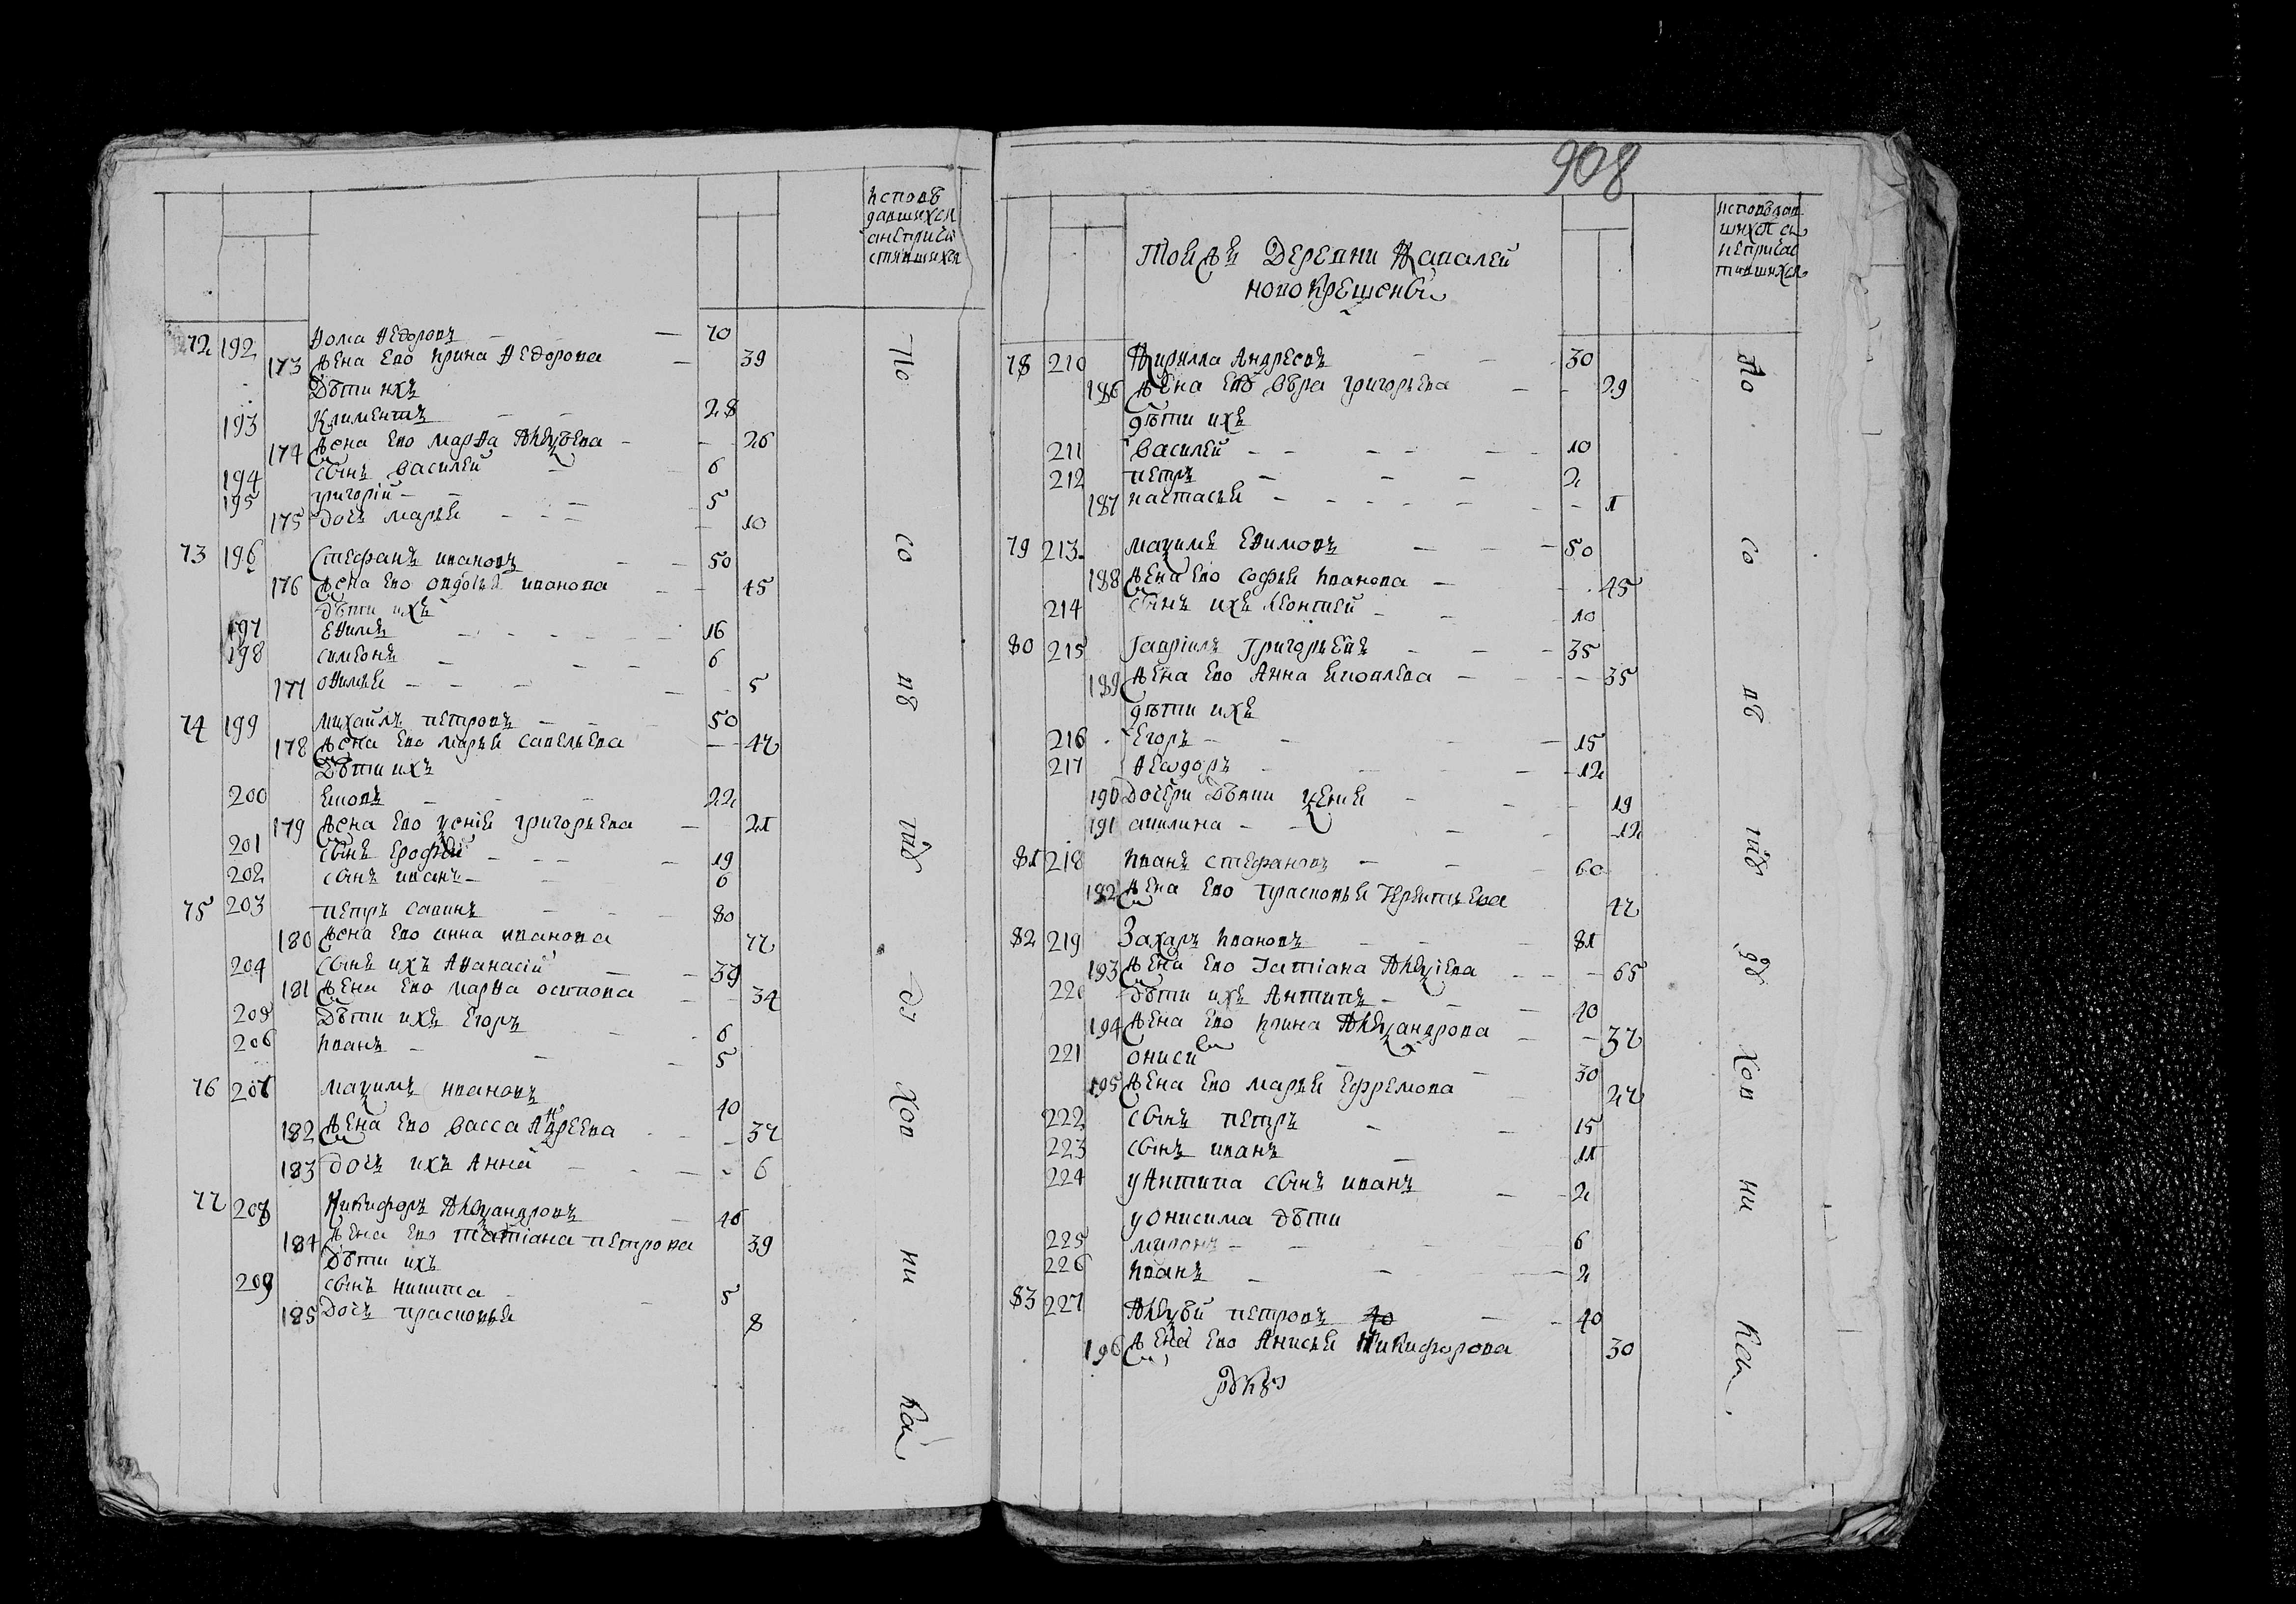 исповѣ
давшихся
анепричa
стившихся
72 192 Ѳома Ѳедоровъ 70
173 жена ево ирина Ѳедорова 39
Дѣти ихъ
193 Климентъ 28
174 жена ево марѳа Алеѯѣева 26
194 сынъ василей 6
195 григорій 5
175 дочь марья 10
73 196 Стефанъ ивановъ 50
176 жена ево овдотья иванова 45
дѣти ихъ
197 Еѳимъ 16
198 симеонъ 6
177 оѳимья 5
74 199 михайлъ петровъ 50
178 жена ево марья савельева 47
Дѣти ихъ
200 Яковъ 22
179 жена ево ѯенія григорьева 21
201 сынъ Ерофѣй 19
202 сынъ иванъ 6
75 203 петръ савинъ 80
180 жена ево анна иванова 77
204 сынъ ихъ Аѳанасій 39
181 жена ево марѳа осипова 34
205 Дѣти ихъ Егоръ 6
206 иванъ 5
76 207 маѯимъ ивановъ 40
182 жена ево васса Андреева 37
183 дочь ихъ Анна 6
77 208 Никифоръ Алеѯандровъ 40
184 жена ево татіана петрова 39
Дѣти ихъ
209 сынъ никита 5
185 Дочь прасковья 8
908
исповѣдав
шихся
непричас
тившихся
Тойже Деревни Кавалей
новокрещены
78 210 Кирилла Андреевъ 30
186 жена ево вѣра григорьева 29
дѣти ихъ
211 василей 10
212 петръ 2
187 настасья 1
79 213 маѯимъ Еѳимовъ 50
188 жена ево софья иванова 45
214 сынъ ихъ леонтей 10
80 215 Гавріилъ Григорьевъ 35
189 жена ево Анна Яковлева 35
дѣти ихъ
216 Егоръ 15
217 Ѳеодоръ 12
190 дочери дѣвки ѯенья 19
191 акилина 12
81 218 иванъ стефановъ 60
182 жена ево прасковья 47
82 219 Захаръ ивановъ 81
193 жена ево Татіана Алеѯіева 65
220 дѣти ихъ Антипъ 40
194 жена ево ирина Алеѯандрова 37
221 онисимъ 30
195 жена ево марья Ефремова 27
222 сынъ петръ 15
223 сынъ иванъ 11
224 у Антипа сынъ иванъ 2
у онисима дѣти
225 миронъ 6
226 иванъ 2
83 227 Алеѯѣй петровъ 40 40
196 жена ево Анисья Никифорова 30